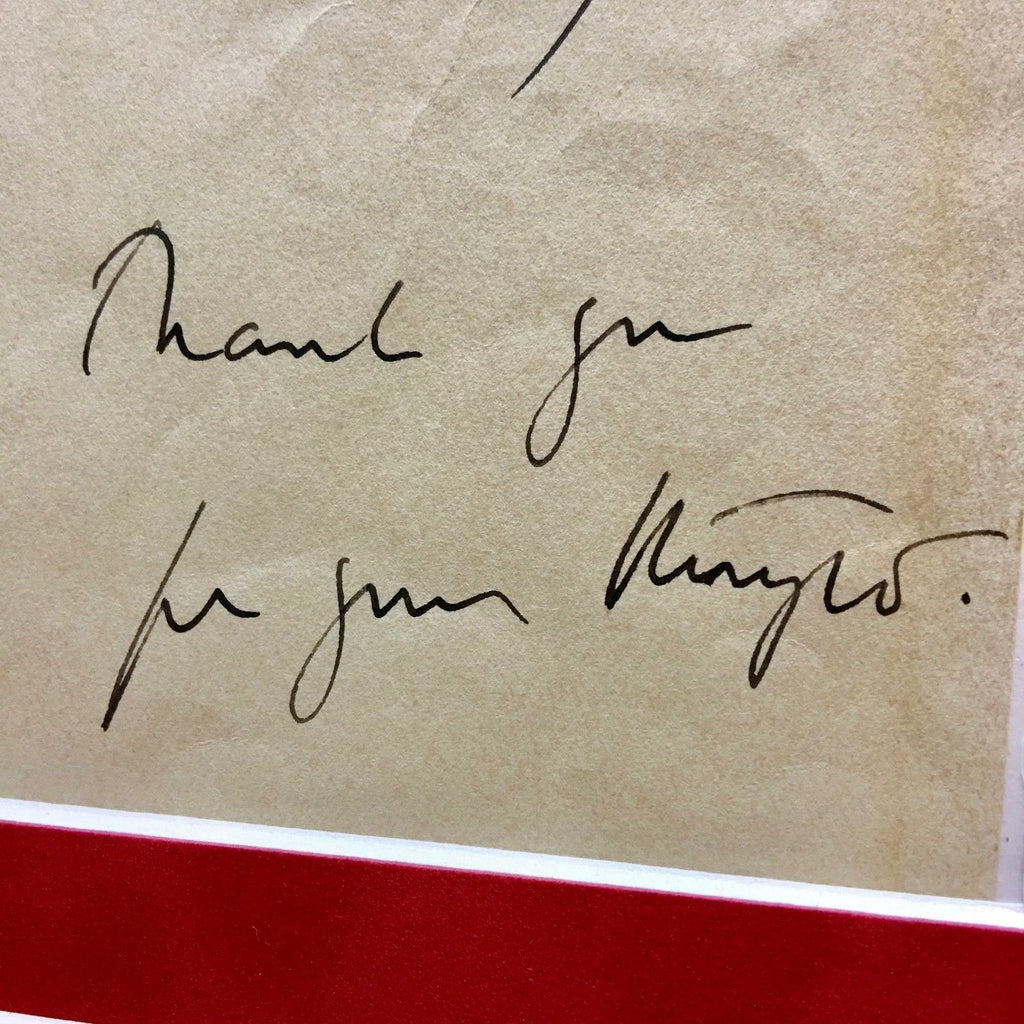 Thank you
for your